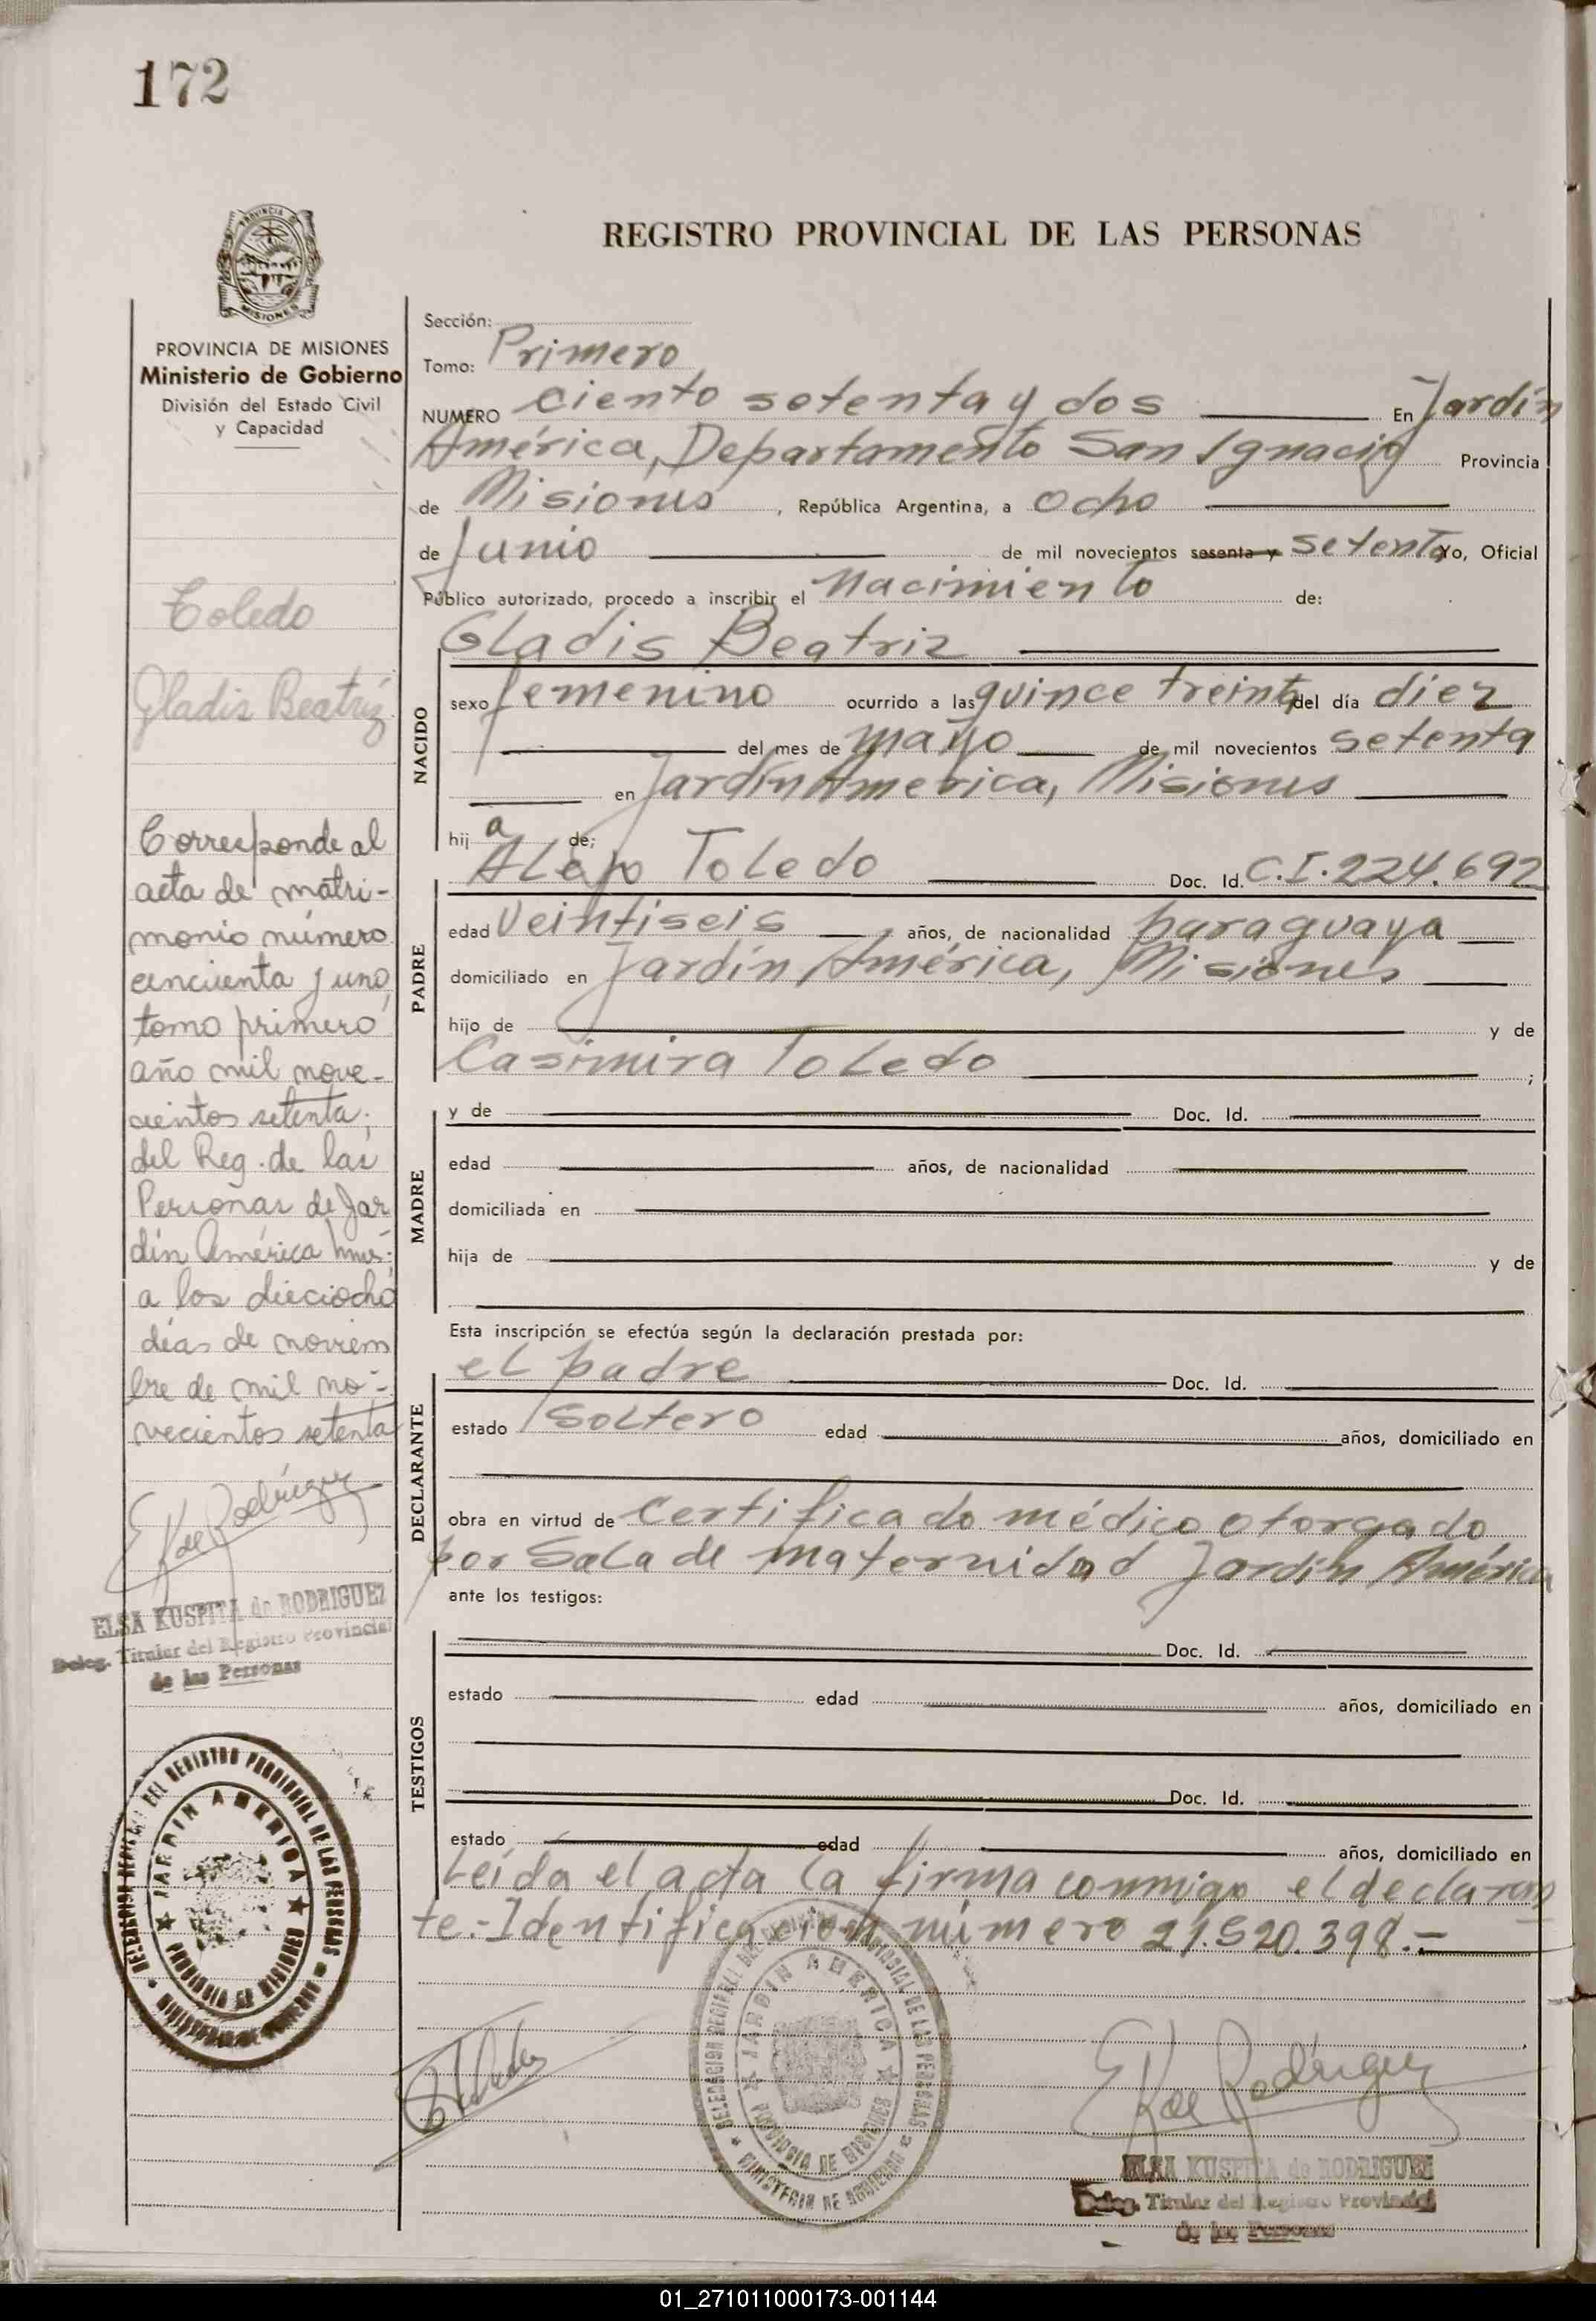 172
PROVINCIA DE
MISIONES
REGISTRO PROVINCIAL DE LAS PERSONAS
PROVINCIA DE MISIONES
Ministerio de Gobierno
División del Estado Civil
y Capacidad
Toledo
Gladis Beatríz
Corresponde al
acta de matri-
monio número
cincuenta y uno,
tomo primero
año mil nove-
cientos setenta;
del Reg. de las
Personas de Jar
dín América Mnes;
a los dieciocho
días de noviem
bre de mil no-
vecientos setenta
E K de Rodríguez
ELSA KUSPITA de RODRIGUEZ
Deleg. Titular del Registro Provincial
de las Personas
DELEGACION REGIONAL DEL REGISTRO PROVINCIAL DE LAS PERSONAS
JARDIN AMERICA
PROVINCIA DE MISIONES
MINISTERIO DE GOBIERNO
Sección:
Tomo: Primero
NUMERO ciento setenta y dos En Jardín
América, Departamento San Ignacio Provincia
de Misiones , República Argentina, a ocho
de Junio de mil novecientos sesenta y setenta Yo, Oficial
Público autorizado, procedo a inscribir el Nacimiento de:
Gladis Beatriz
NACIDO
sexo femenino ocurrido a las quince treinta del día diez
del mes de mayo de mil novecientos setenta
en Jardín America, Misiones
hij a de;
Alejo Toledo Doc. Id. C.I.224.692
PADRE
edad veintiseis años, de nacionalidad paraguaya
domiciliado en Jardín América, Misiones
hijo de y de
Casimira Toledo ;
MADRE
y de Doc. Id.
edad años, de nacionalidad
domiciliada en
hija de y de
Esta inscripción se efectúa según la declaración prestada por:
DECLARANTE
el padre Doc. Id.
estado soltero edad años, domiciliado en
obra en virtud de certificado médico otorgado
por Sala de maternidad Jardín América
ante los testigos:
TESTIGOS
Doc. Id.
estado edad años, domiciliado en
Doc. Id.
estado edad años, domiciliado en
Leída el acta la firma conmigo el declaran
te.- Identificación número 21.520.398.-
DELEGACION REGIONAL DEL REGISTRO PROVINCIAL DE LAS PERSONAS
JARDIN AMERICA
PROVINCIA DE MISIONES
MINISTERIO DE GOBIERNO
E K de Rodríguez
ELSA KUSPITA de RODRIGUEZ
Deleg. Titular del Registro Provincial
de las Personas
01_271011000173-001144